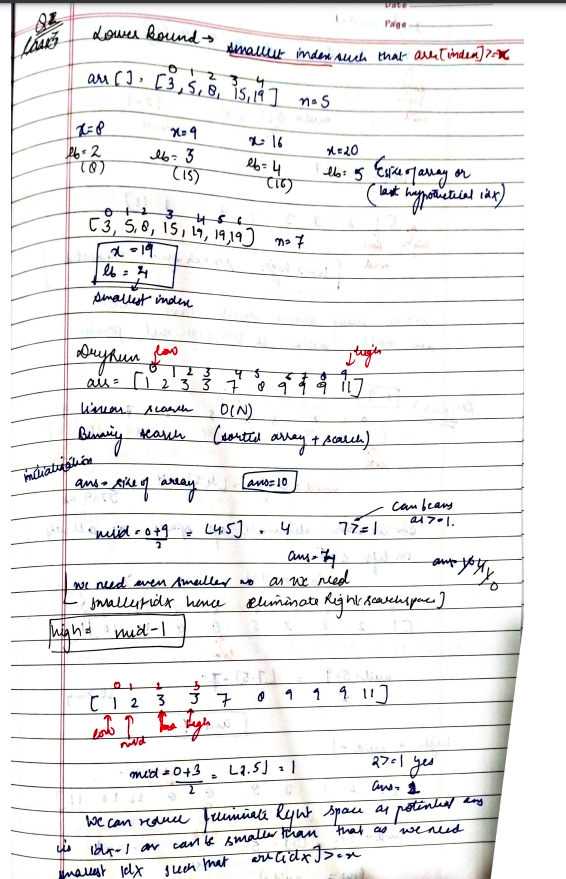 Date
Page
Q2
Lower Bound → smallest index such that arr[index]>=x
0 1 2 3 4
arr[] = [3,5,8, 15,19] n=5
x=8 x=9 x=16 x=20
lb=2 lb=3 lb=4 lb=5 (size of array or
(8) (15) (16) (last hypothetical idx)
0 1 2 3 4 5 6
[3, 5,8, 15, 19, 19,19] n=7
x=19
lb=4
smallest index
Dry Run low high
0 1 2 3 4 5 6 7 8 9
arr = [1 2 3 3 7 8 9 9 9 11]
linear search O(N)
Binary search (sorted array + search)
initialization
ans = size of array ans=10
mid = 0+9/2 = ⌊4.5⌋ = 4 7>=1 can be ans
as >=1.
ans = 4 ans = 10 4 1 0
[we need even smaller no as we need
smallest idx hence eliminate Right searchspace]
high = mid-1
0 1 2 3
[1 2 3 3 7 8 9 9 9 11]
low mid high
mid = 0+3/2 = ⌊2.5⌋ = 1 2>=1 yes
ans = 1
we can reduce / eliminate Right space as potential ans
is idx-1 or can be smaller than that as we need
smallest idx such that arr[idx]>=x